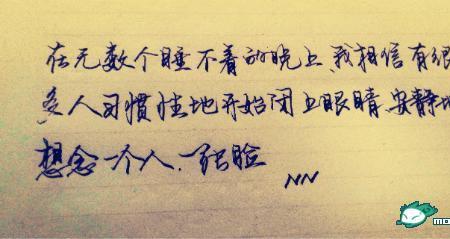 在无数个睡不着的晚上,我相信有很
多人习惯性地开始闭上眼睛,安静地
想念一个人.一张脸
NN
mo